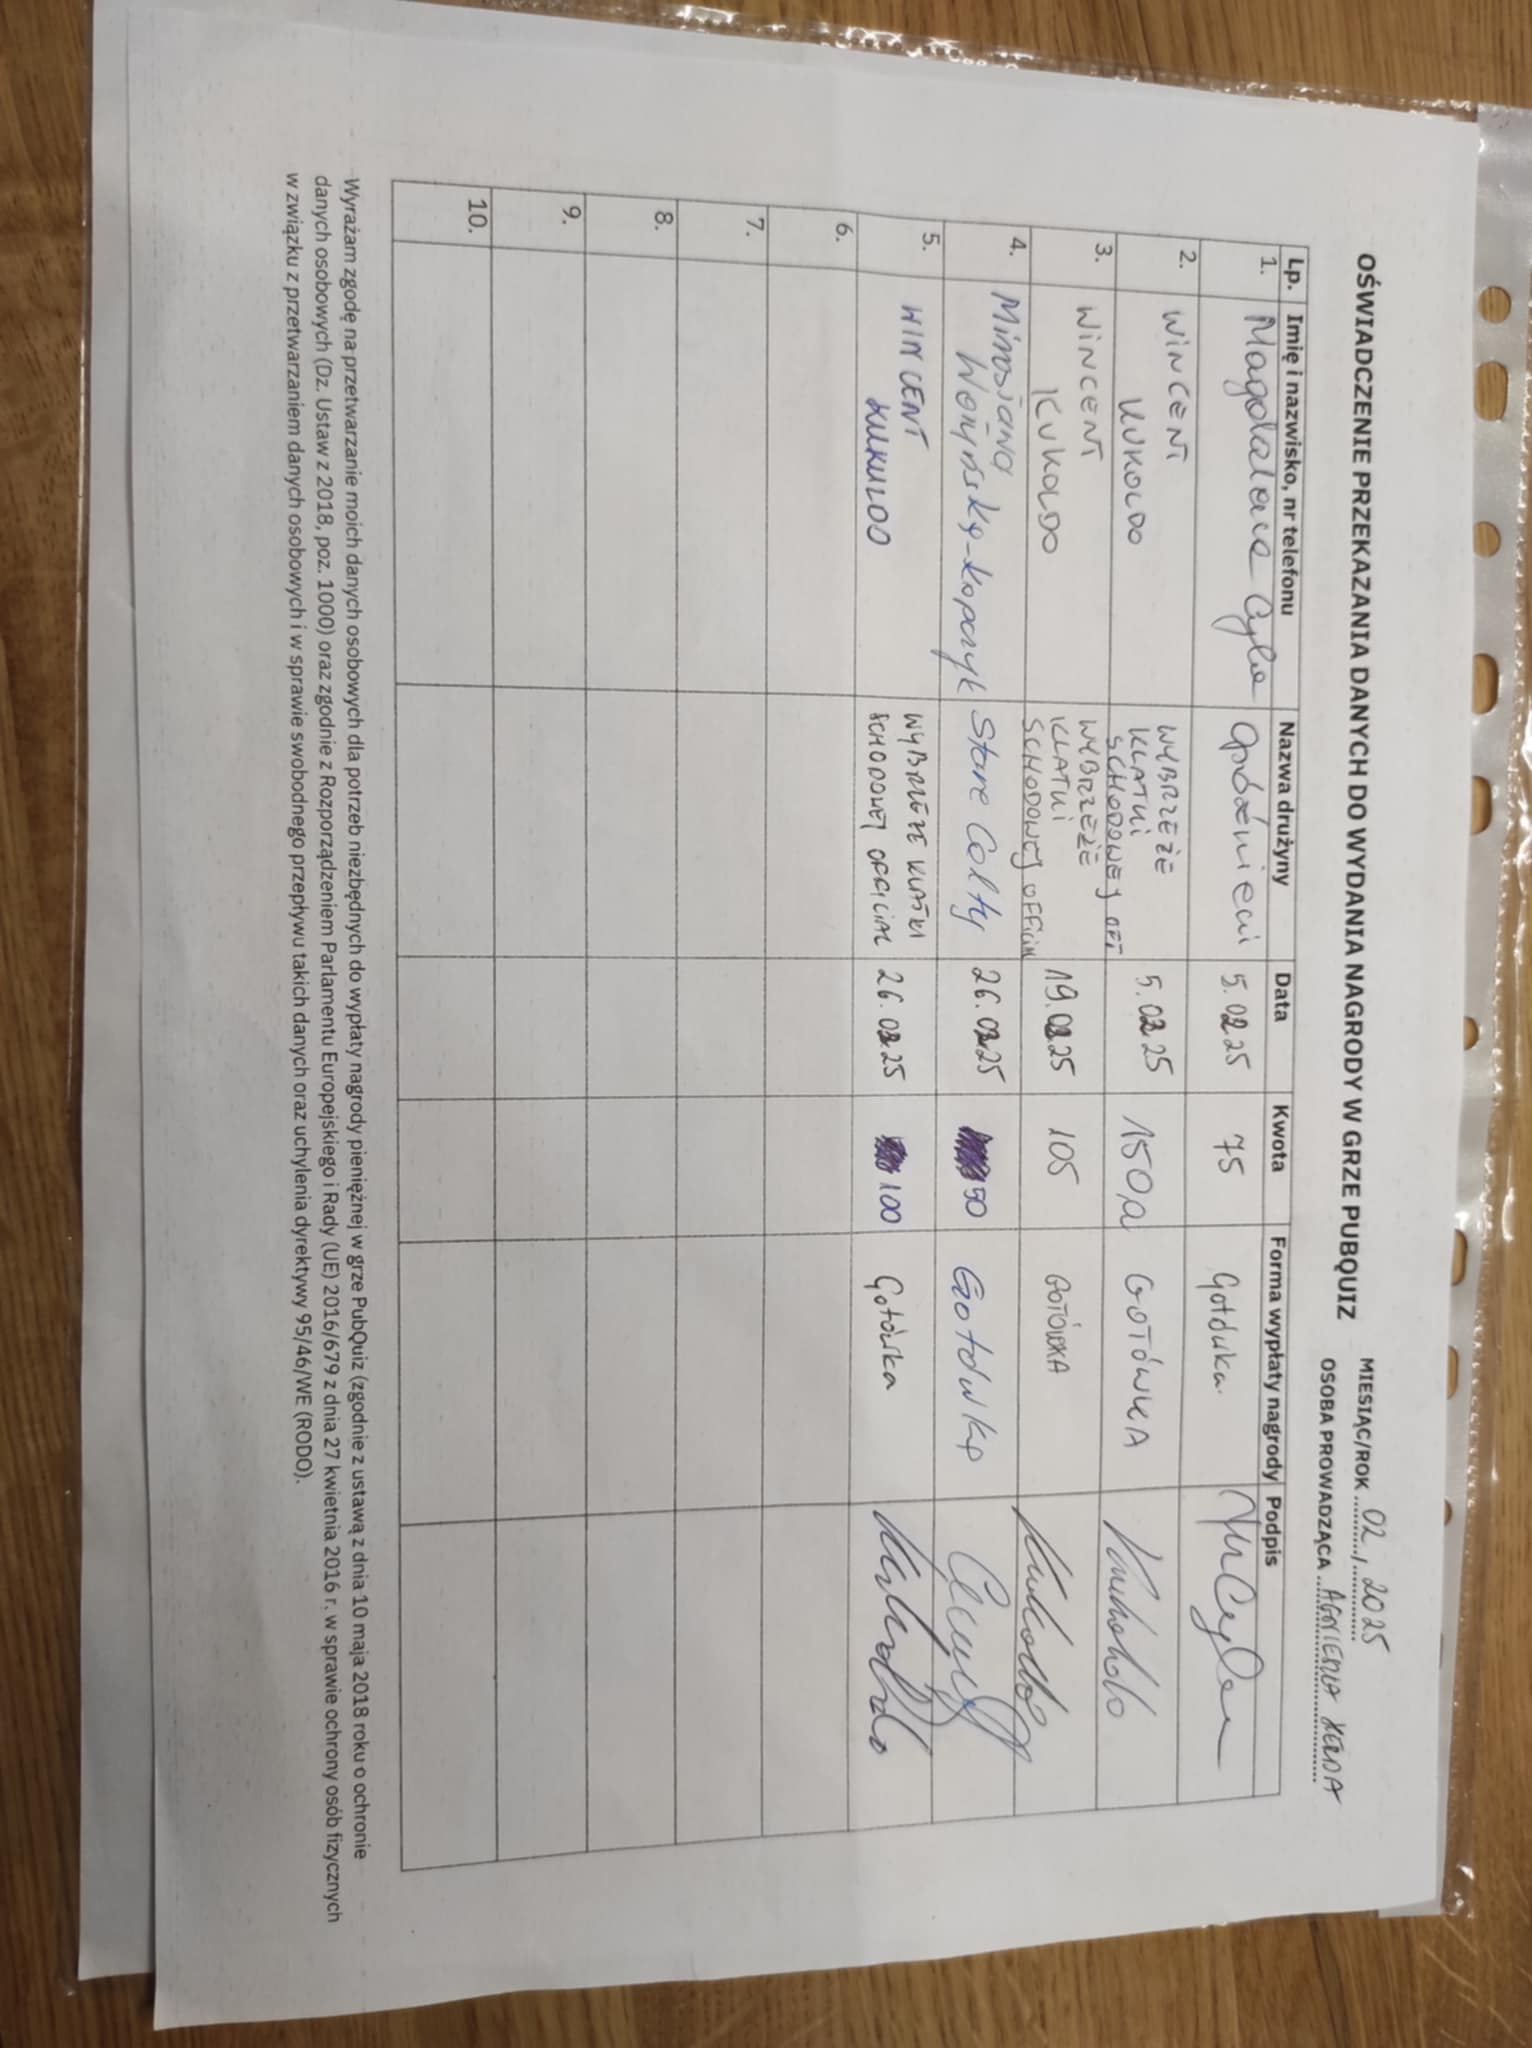 OŚWIADCZENIE PRZEKAZANIA DANYCH DO WYDANIA NAGRODY W GRZE PUBQUIZ
MIESIĄC/ROK 02 / 2025
OSOBA PROWADZĄCA
Lp. Imię i nazwisko, nr telefonu Nazwa drużyny Data Kwota Forma wypłaty nagrody Podpis
1. Magdalena Cyla 5.02.25 75 Gotówka
2. WINCENT KUKOLDO WYBRZEŻE KLATKI SCHODOWEJ OFF 5.02.25 150 GOTÓWKA
3. WINCENT KUKOLDO WYBRZEŻE KLATKI SCHODOWEJ OFFICIAL 19.02.25 105 GOTÓWKA
4. Stare Celty 26.02.25 50 Gotówka
5. WINCENT WYBRZEŻE KLATKI SCHODOWEJ OFFICIAL 26.02.25 100 Gotówka
6.
7.
8.
9.
10.
Wyrażam zgodę na przetwarzanie moich danych osobowych dla potrzeb niezbędnych do wypłaty nagrody pieniężnej w grze PubQuiz (zgodnie z ustawą z dnia 10 maja 2018 roku o ochronie
danych osobowych (Dz. Ustaw z 2018, poz. 1000) oraz zgodnie z Rozporządzeniem Parlamentu Europejskiego i Rady (UE) 2016/679 z dnia 27 kwietnia 2016 r. w sprawie ochrony osób fizycznych
w związku z przetwarzaniem danych osobowych i w sprawie swobodnego przepływu takich danych oraz uchylenia dyrektywy 95/46/WE (RODO).